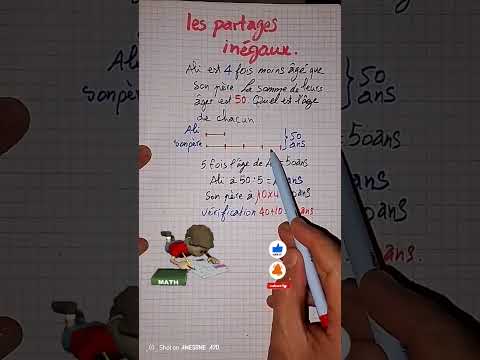 les partages
inégaux.
Ali est 4 fois moins âgé que
son père la somme de leurs
âges est 50. Quel est l'âge
de chacun
Ali
son père
50
ans
5 fois l'âge de = 50ans
Ali a 50:5= ans
Son père a 10×4 ans
vérification 40+10 ans
MATH
Shot on AWESOME A70